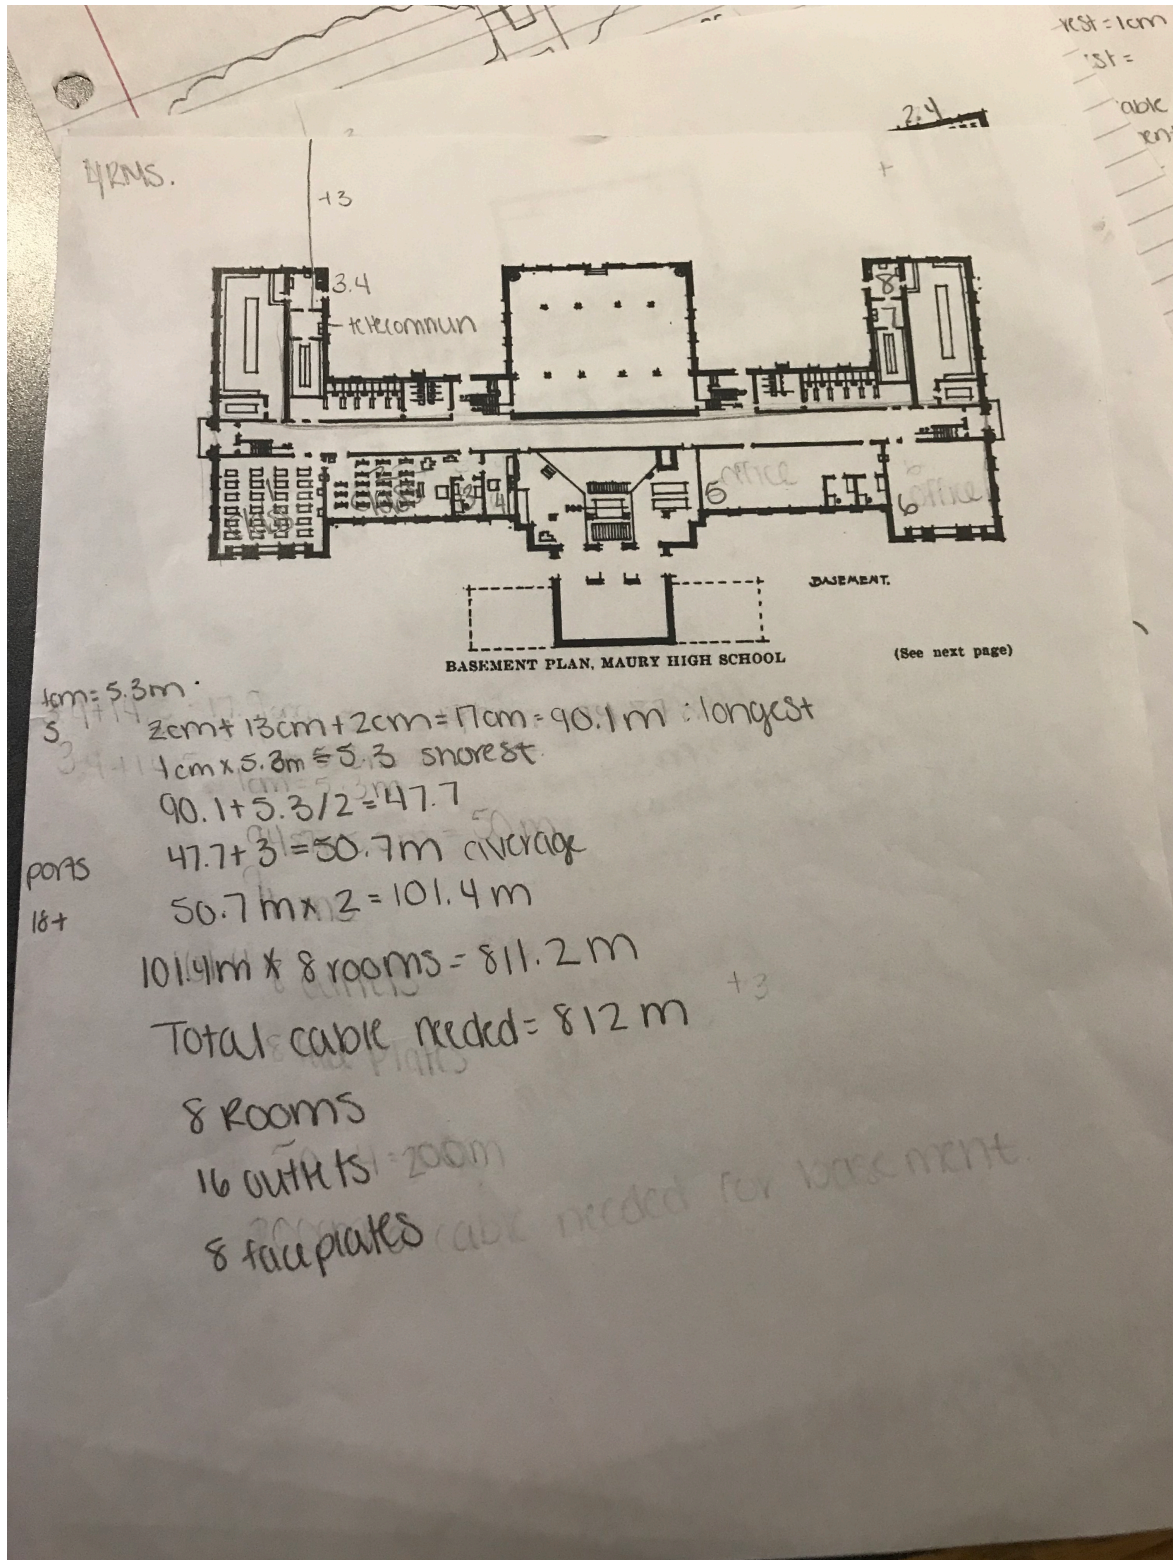 rest = 1cm
st =
able
2.4
4 RMS.
+3
+
3.4
telecommun
8
7
1
class
class
3
4
5
office
6
office
BASEMENT.
BASEMENT PLAN, MAURY HIGH SCHOOL
(See next page)
1cm = 5.3m
5
2cm + 13cm + 2cm = 17cm = 90.1m : longest
1cm x 5.3m = 5.3 shorest
90.1 + 5.3/2 = 47.7
47.7 + 3 = 50.7m average
ports
50.7m x 2 = 101.4m
18+
101.4m * 8 rooms = 811.2m
+3
Total cable needed = 812m
8 Rooms
16 outlets
= 200m
8 faceplates
cable needed for basement.